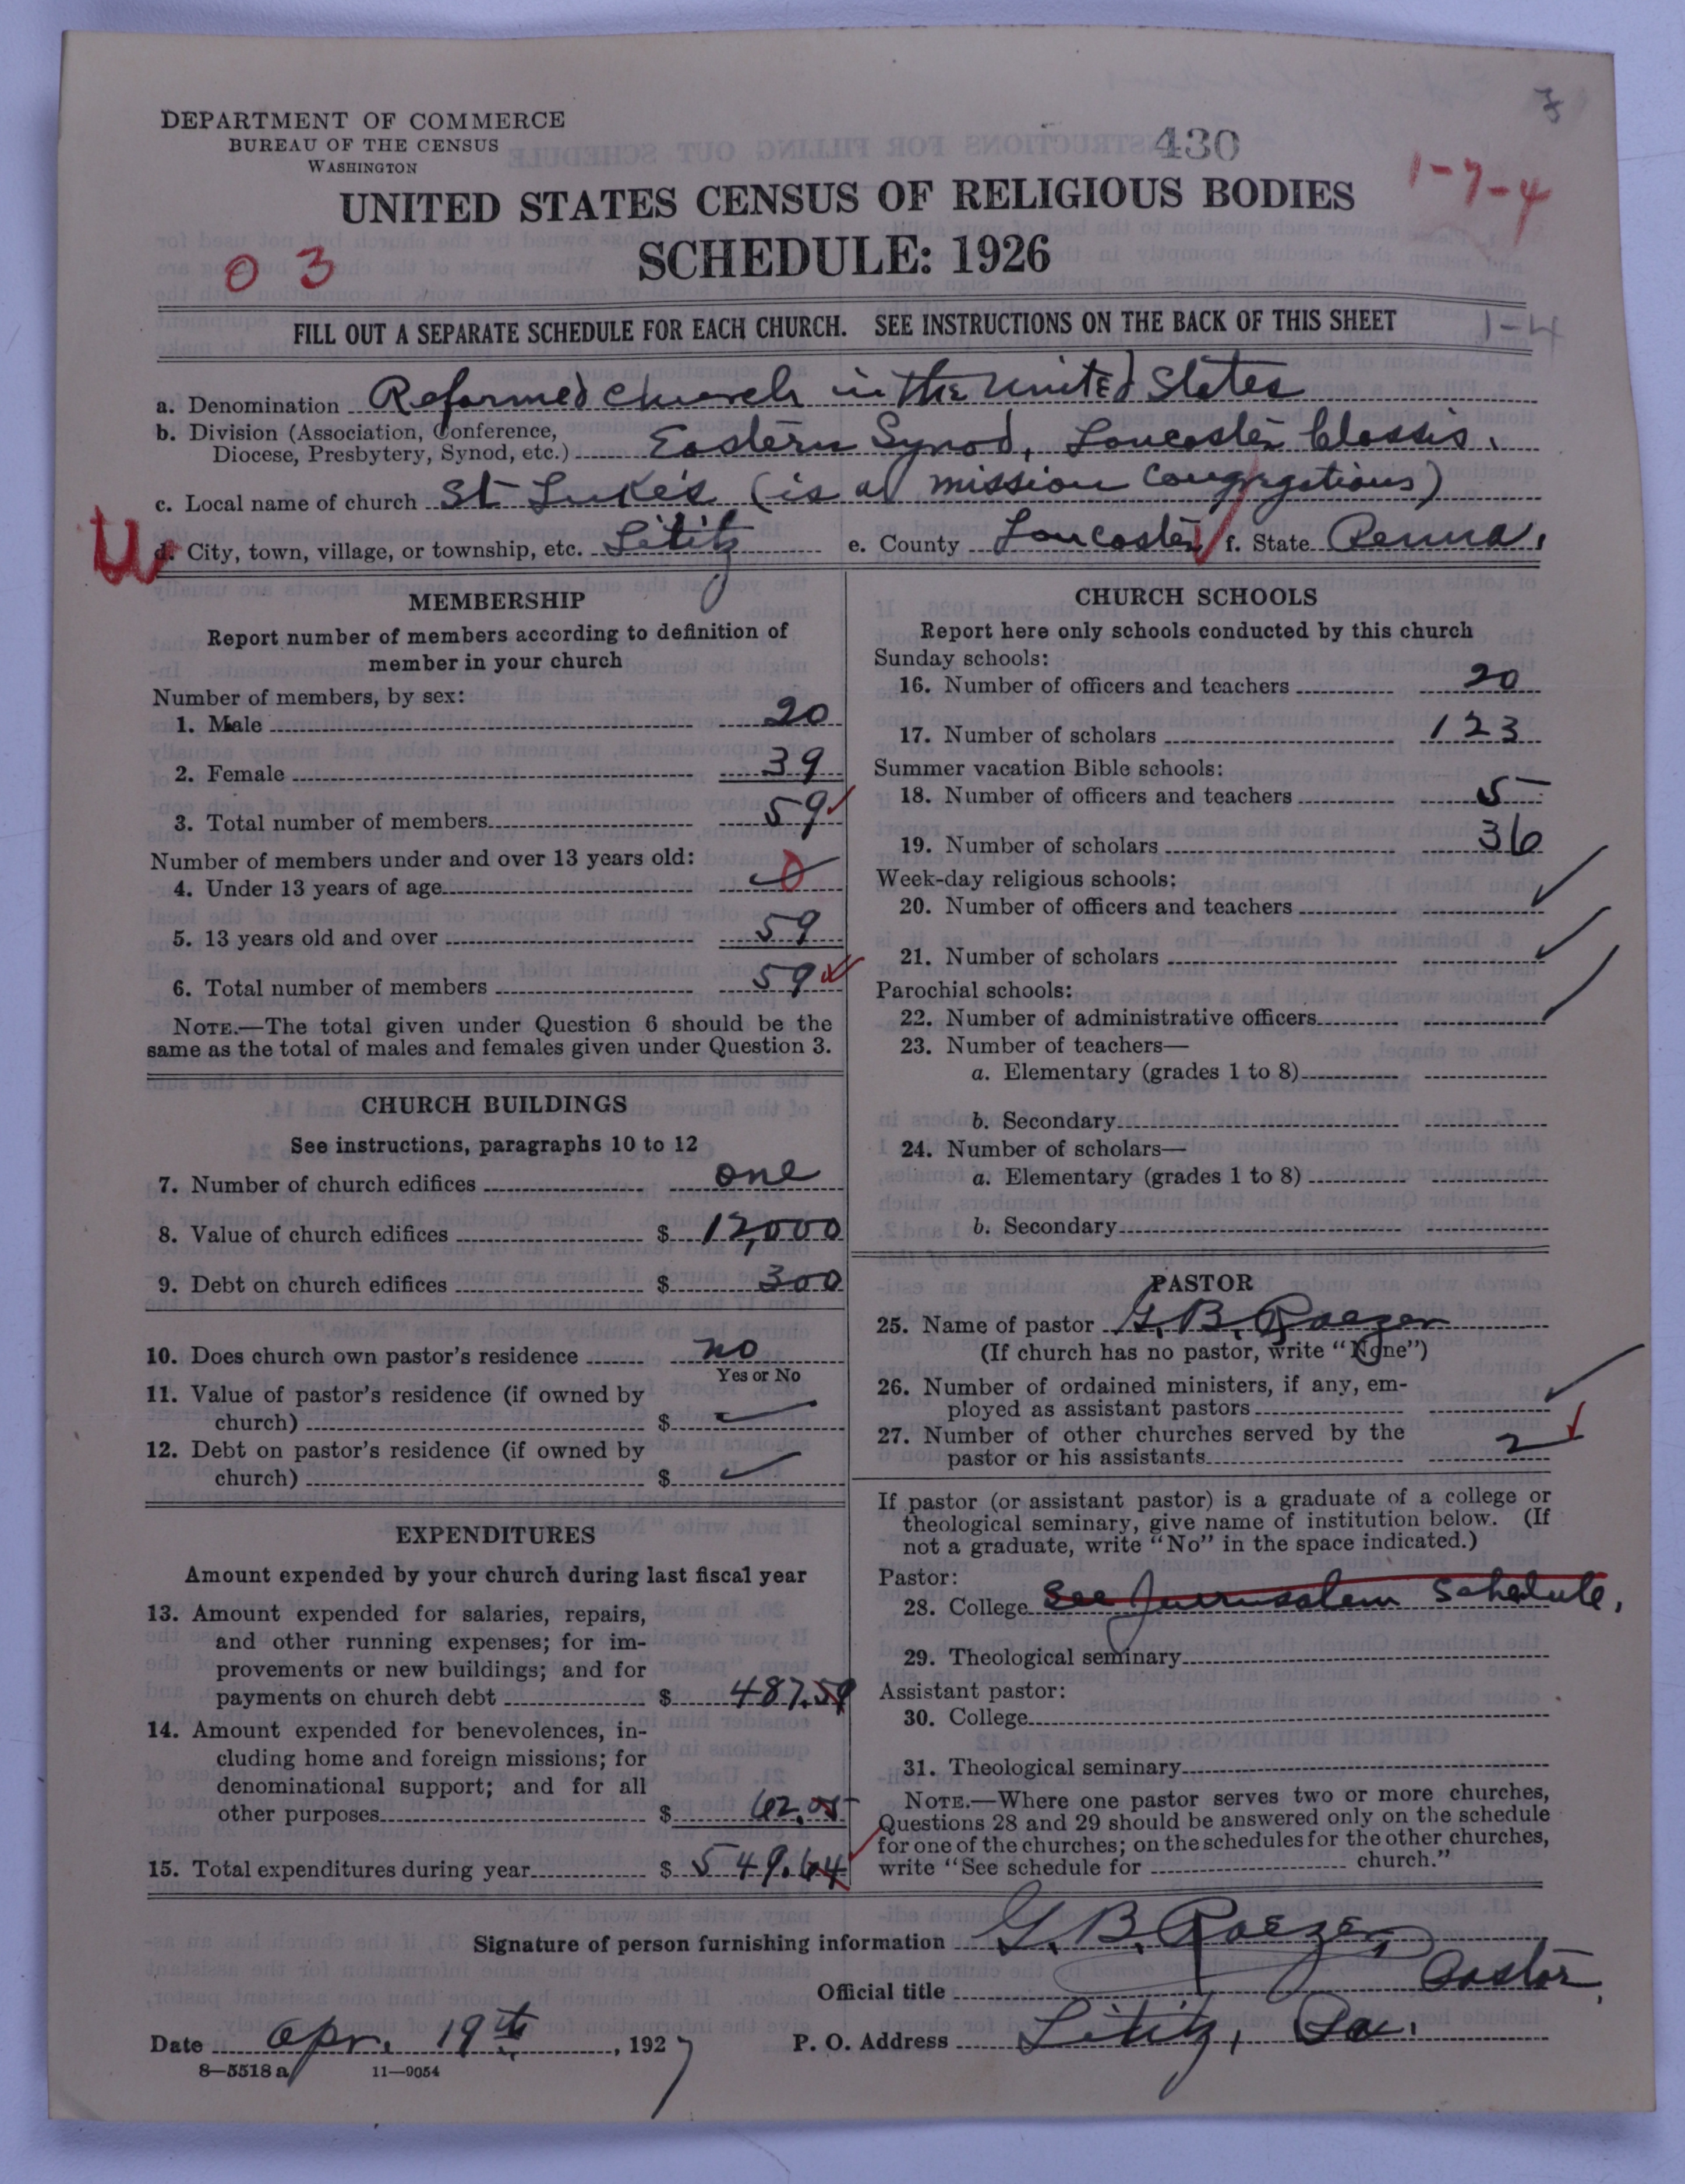 7
DEPARTMENT OF COMMERCE
BUREAU OF THE CENSUS
WASHINGTON
430
1-7-4
UNITED STATES CENSUS OF RELIGIOUS BODIES
SCHEDULE: 1926
03
FILL OUT A SEPARATE SCHEDULE FOR EACH CHURCH. SEE INSTRUCTIONS ON THE BACK OF THIS SHEET
1-4
a. Denomination Reformed Church in the United States
b. Division (Association, Conference,
Diocese, Presbytery, Synod, etc.) Eastern Synod, Lancaster Classis.
c. Local name of church St Luke's (is a mission congregations)
U
d. City, town, village, or township, etc. Lititz e. County Lancaster f. State Penna.
MEMBERSHIP
Report number of members according to definition of
member in your church
Number of members, by sex:
1. Male 20
2. Female 39
3. Total number of members 59
Number of members under and over 13 years old:
4. Under 13 years of age 0
5. 13 years old and over 59
6. Total number of members 59
NOTE.—The total given under Question 6 should be the
same as the total of males and females given under Question 3.
CHURCH BUILDINGS
See instructions, paragraphs 10 to 12
7. Number of church edifices one
8. Value of church edifices $ 12,000
9. Debt on church edifices $ 300
10. Does church own pastor's residence no
Yes or No
11. Value of pastor's residence (if owned by
church) $
12. Debt on pastor's residence (if owned by
church) $
EXPENDITURES
Amount expended by your church during last fiscal year
13. Amount expended for salaries, repairs,
and other running expenses; for im-
provements or new buildings; and for
payments on church debt $ 487.59
14. Amount expended for benevolences, in-
cluding home and foreign missions; for
denominational support; and for all
other purposes $ 62.05
15. Total expenditures during year $ 549.64
CHURCH SCHOOLS
Report here only schools conducted by this church
Sunday schools:
16. Number of officers and teachers 20
17. Number of scholars 123
Summer vacation Bible schools:
18. Number of officers and teachers 5
19. Number of scholars 36
Week-day religious schools:
20. Number of officers and teachers
21. Number of scholars
Parochial schools:
22. Number of administrative officers
23. Number of teachers—
a. Elementary (grades 1 to 8)
b. Secondary
24. Number of scholars—
a. Elementary (grades 1 to 8)
b. Secondary
PASTOR
25. Name of pastor G. B. Raezer
(If church has no pastor, write "None")
26. Number of ordained ministers, if any, em-
ployed as assistant pastors
27. Number of other churches served by the
pastor or his assistants 2
If pastor (or assistant pastor) is a graduate of a college or
theological seminary, give name of institution below. (If
not a graduate, write "No" in the space indicated.)
Pastor:
28. College See Jurrusalem Schedule,
29. Theological seminary
Assistant pastor:
30. College
31. Theological seminary
NOTE.—Where one pastor serves two or more churches,
Questions 28 and 29 should be answered only on the schedule
for one of the churches; on the schedules for the other churches,
write "See schedule for church."
Signature of person furnishing information G. B. Raezer
Official title Pastor
Date Apr. 19th, 1927 P. O. Address Lititz, Pa.
8—5518 a 11—9054